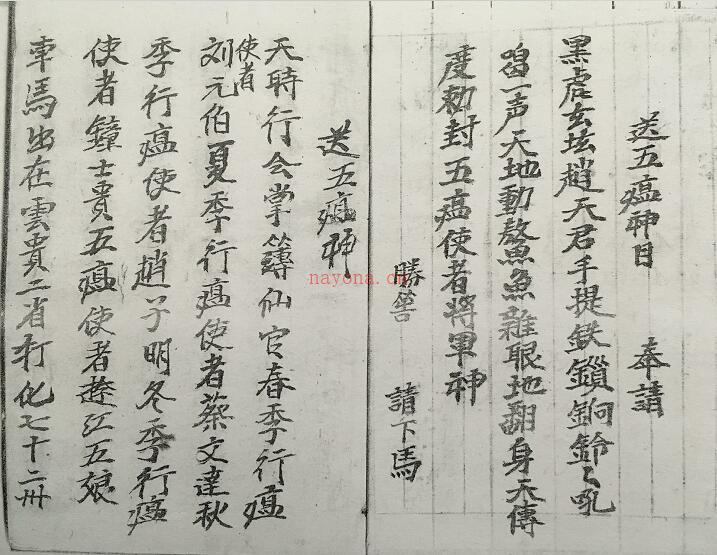 送五瘟神目 奉請
黑虎玄坛趙天君手提鉄鎖响鈴〻吼
喝一声天地動鰲魚雜眼地翻身天傳
度勅封五瘟使者將軍神
勝筶 請下馬
送五瘟神
天時行会掌簿仙官春季行瘟
使者
刘元伯夏季行瘟使者蔡文達秋
季行瘟使者趙子明冬季行瘟
使者鐘士貴五瘟使者遊江五娘
車馬出在雲貴二省行化七十二州
nayona.cn